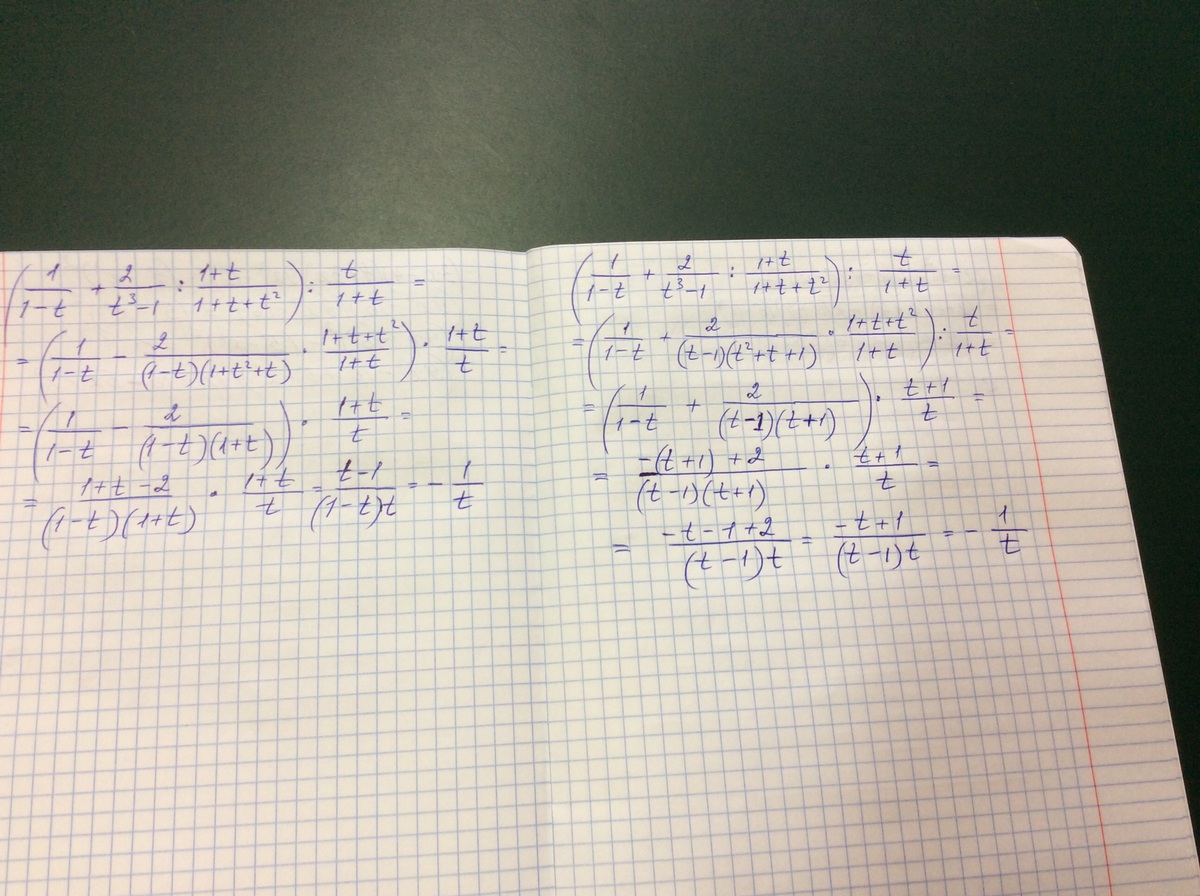 (1/(1-t) + 2/(t³-1) : (1+t)/(1+t+t²)) : t/(1+t) =
= (1/(1-t) - 2/((1-t)(1+t²+t)) · (1+t+t²)/(1+t)) · (1+t)/t =
= (1/(1-t) - 2/((1-t)(1+t))) · (1+t)/t =
= (1+t-2)/((1-t)(1+t)) · (1+t)/t = (t-1)/((1-t)t) = - 1/t
(1/(1-t) + 2/(t³-1) : (1+t)/(1+t+t²)) : t/(1+t) =
= (1/(1-t) + 2/((t-1)(t²+t+1)) · (1+t+t²)/(1+t)) : t/(1+t) =
= (1/(1-t) + 2/((t-1)(t+1))) · (t+1)/t =
= (-(t+1)+2)/((t-1)(t+1)) · (t+1)/t =
= (-t-1+2)/((t-1)t) = (-t+1)/((t-1)t) = - 1/t